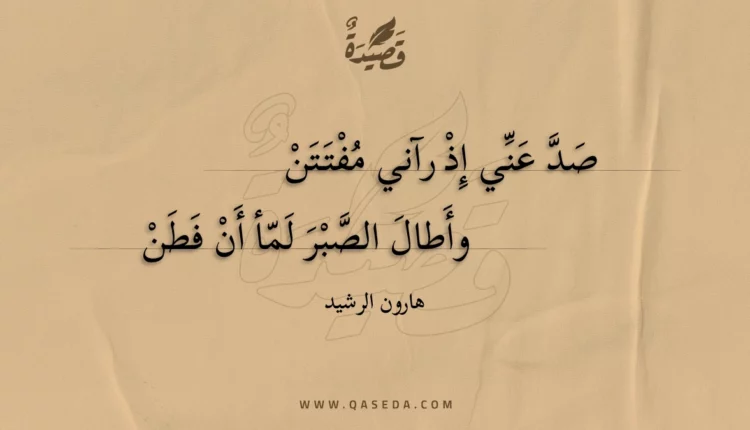 قَصِيدَةٌ
صَدَّ عَنِّي إِذْ رَآني مُفْتَتَنْ
وأَطالَ الصَّبْرَ لَمّأ أَنْ فَطَنْ
هارون الرشيد
WWW.QASEDA.COM